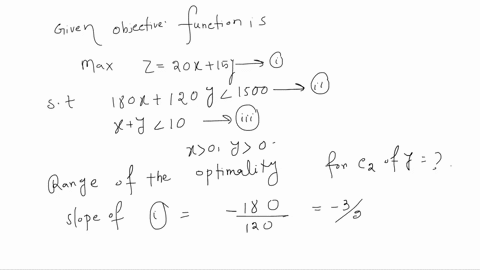 Given objective function is
Max Z = 20x + 15y → (i)
s.t 180x + 120y < 1500 → (ii)
x + y < 10 → (iii)
x > 0, y > 0.
Range of the optimality for c₂ of y = ?.
slope of (i) = -180/120 = -3/2